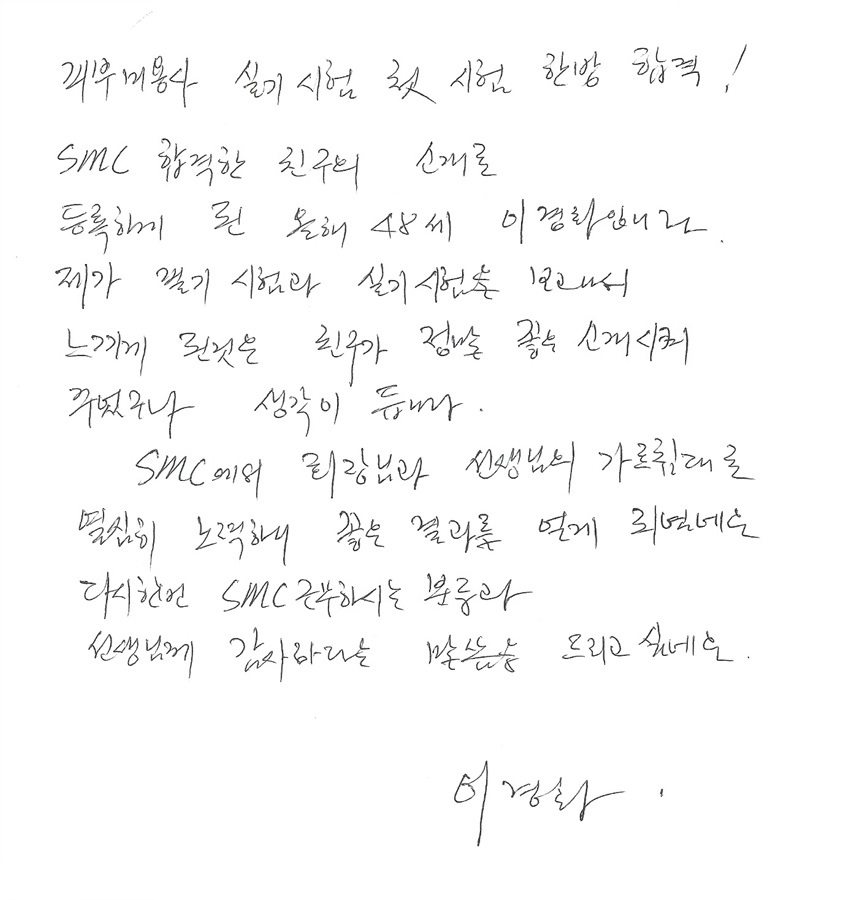 피부미용사 실기 시험 첫 시험 한방 합격!
SMC 합격한 친구의 소개로
등록하게 된 올해 48세 이경화입니다.
제가 필기 시험과 실기시험을 보고나서
느끼게 된것은 친구가 정말 좋은 소개시켜
주었구나 생각이 듭니다.
SMC에의 회장님과 선생님의 가르침대로
열심히 노력하니 좋은 결과를 얻게 되었네요
다시한번 SMC 근무하시는 분들과
선생님께 감사하다는 말씀을 드리고 싶네요.
이경화.